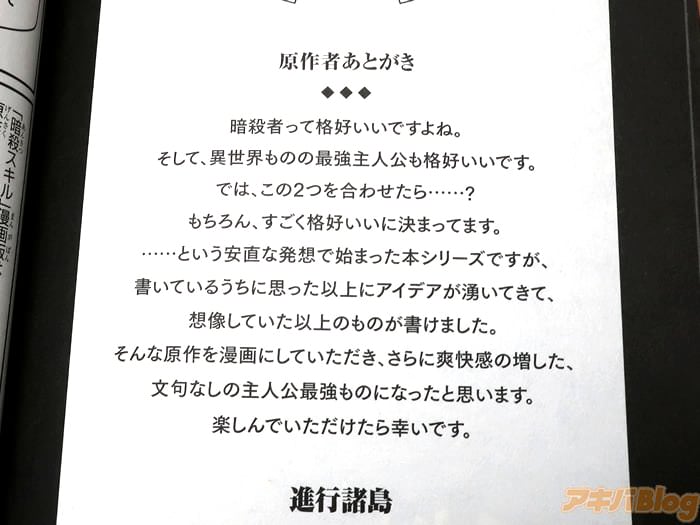 原作者あとがき
◆◆◆
暗殺者って格好いいですよね。
そして、異世界ものの最強主人公も格好いいです。
では、この2つを合わせたら……?
もちろん、すごく格好いいに決まってます。
……という安直な発想で始まった本シリーズですが、
書いているうちに思った以上にアイデアが湧いてきて、
想像していた以上のものが書けました。
そんな原作を漫画にしていただき、さらに爽快感の増した、
文句なしの主人公最強ものになったと思います。
楽しんでいただけたら幸いです。
進行諸島
「暗殺スキル」漫画版
アキバBlog